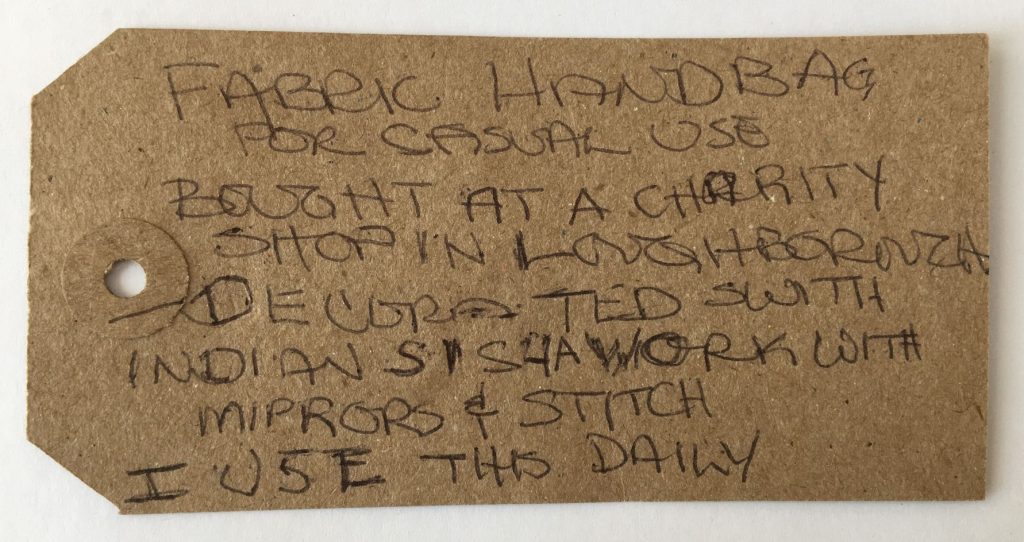 FABRIC HANDBAG
FOR CASUAL USE
BOUGHT AT A CHARITY
SHOP IN LOUGHBOROUGH
DECORATED SWITH
INDIAN SISHA WORK WITH
MIPRORS & STITCH
I USE THIS DAILY